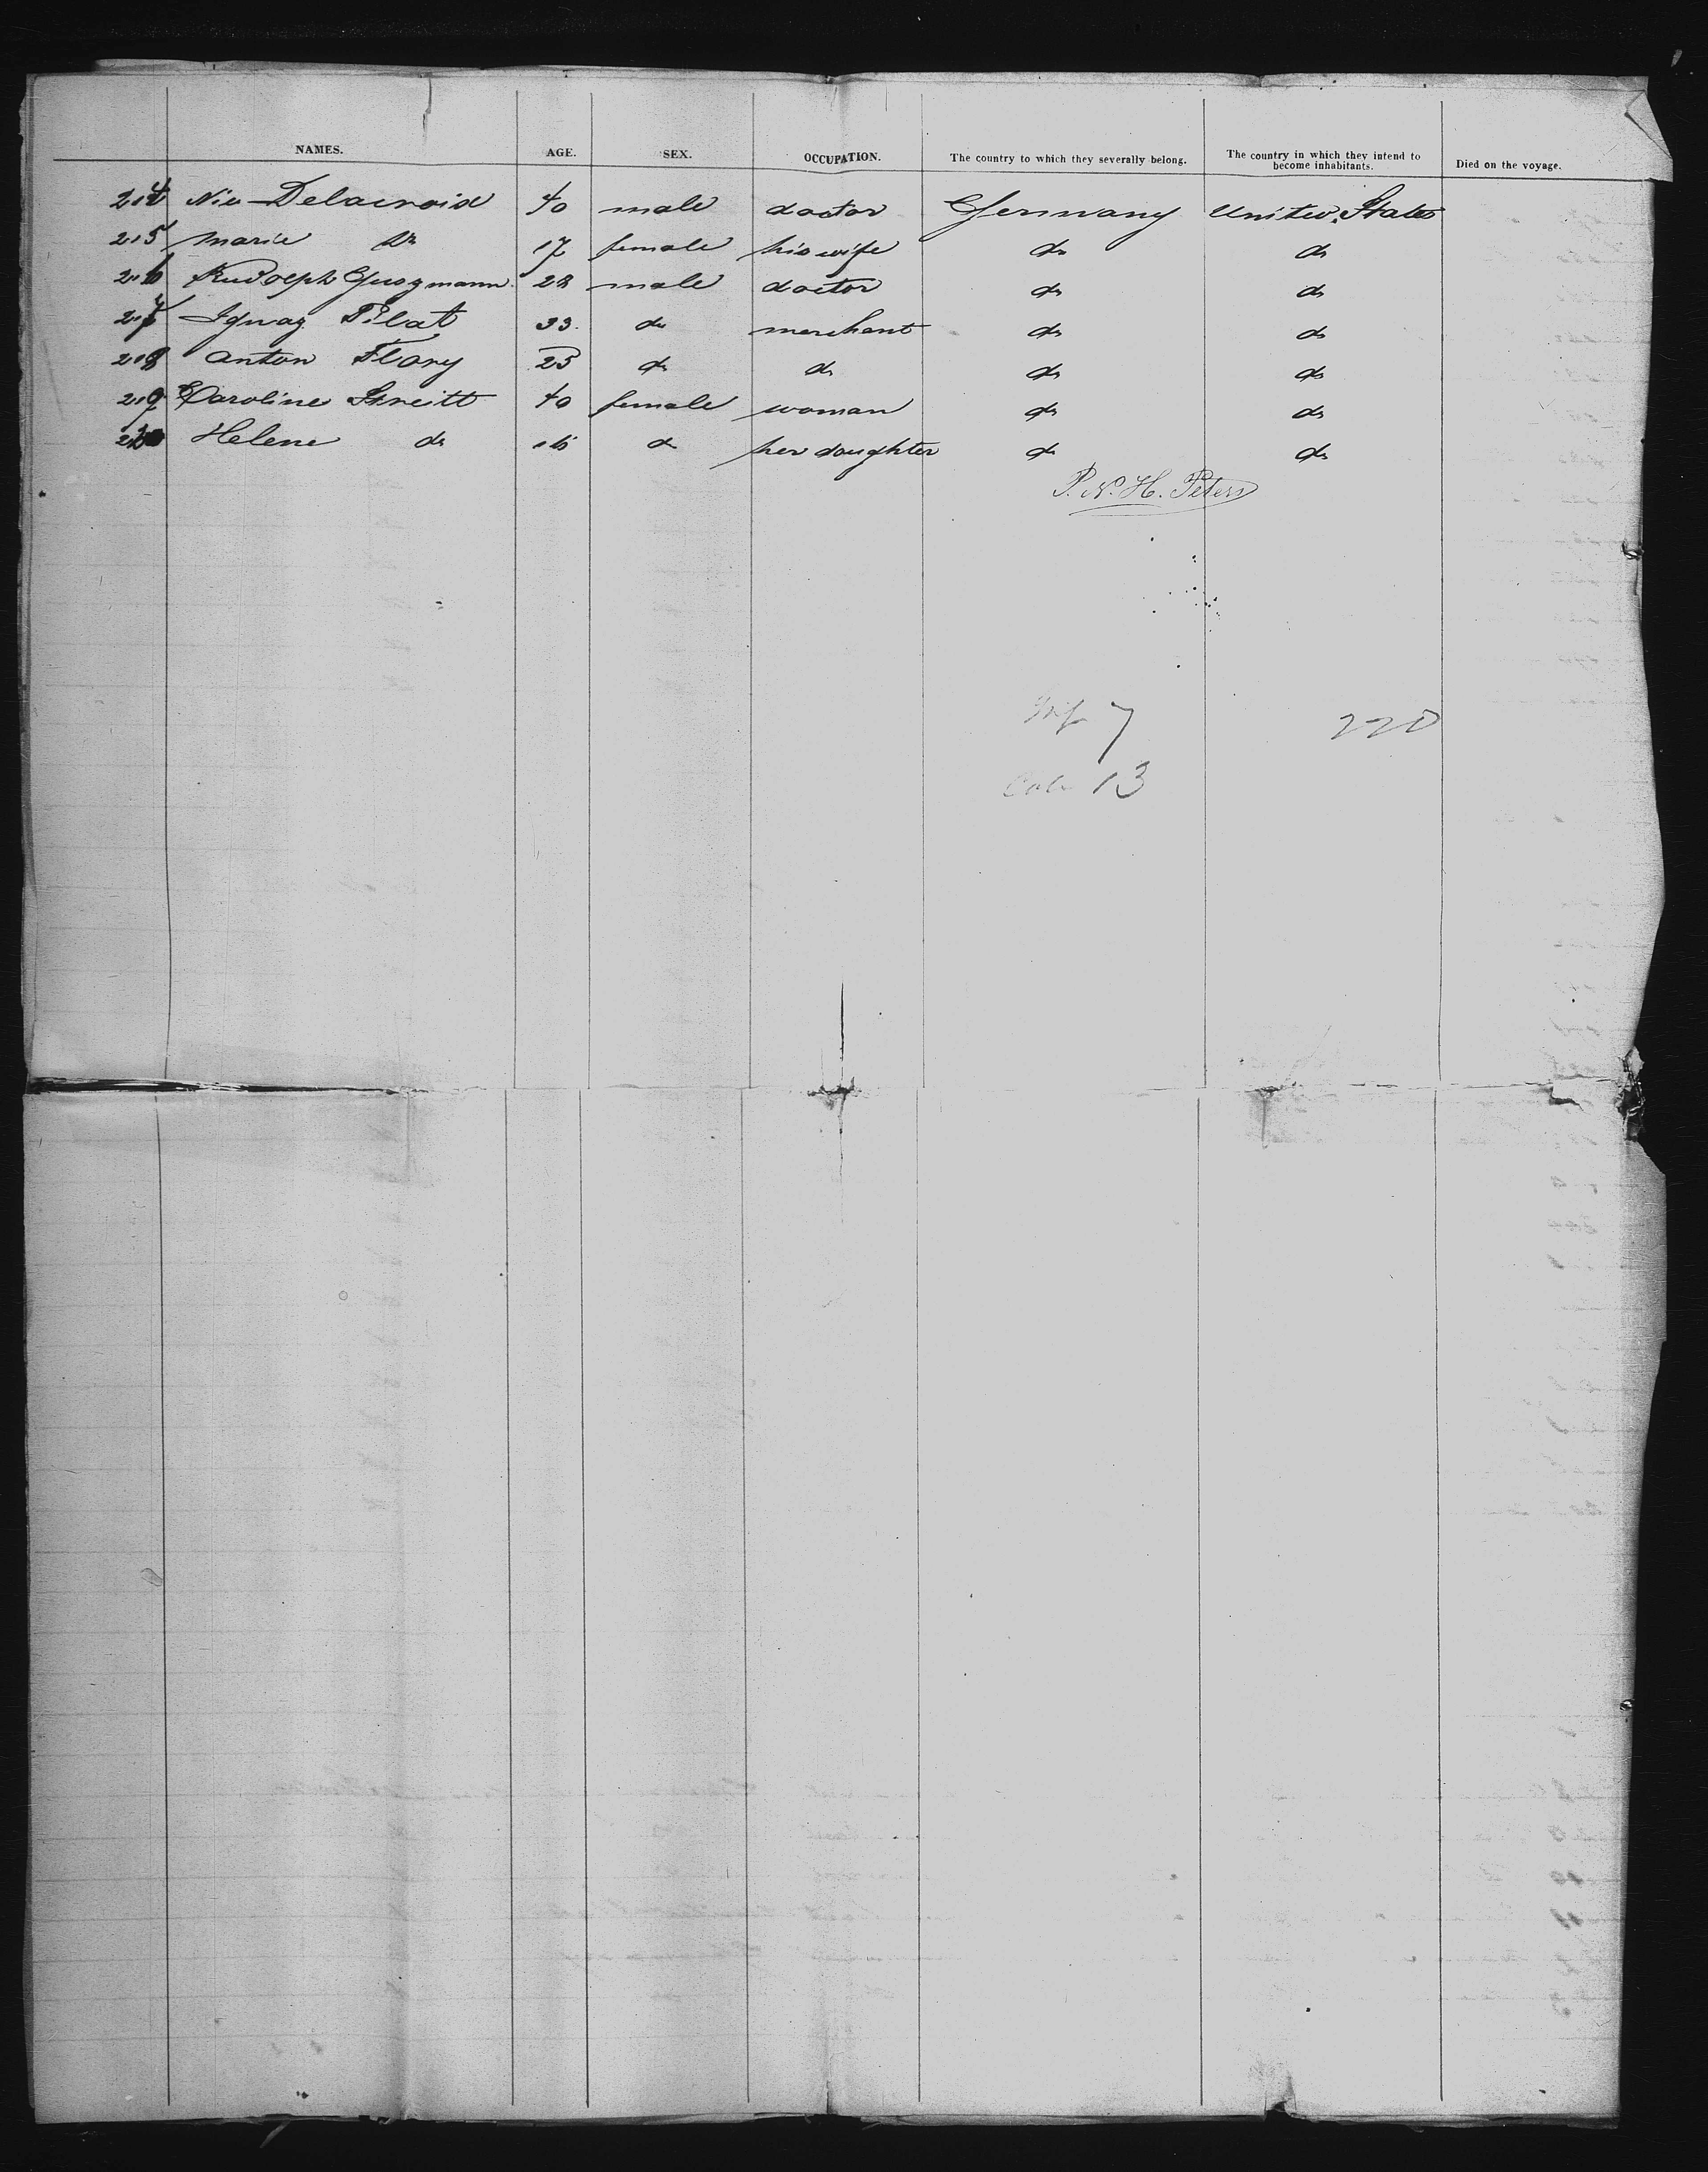 NAMES. AGE. SEX. OCCUPATION. The country to which they severally belong. The country in which they intend to become inhabitants. Died on the voyage.
214 Nic Delacroid 40 male doctor Germany United States
215 Marie do 17 female his wife do do
216 Rudolph Guszmann 28 male doctor do do
217 Ignaz Pilat 33 do merchant do do
218 Anton Flory 25 do do do do
219 Caroline Streitt 40 female woman do do
220 Helene do 16 do her daughter do do
P. N. H. Peters
Inf 7 220
13